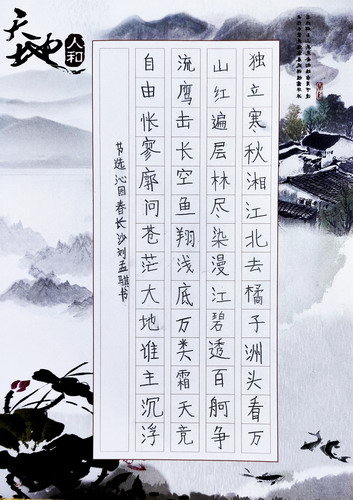 天地
人和
独立寒秋湘江北去橘子洲头看万
山红遍层林尽染漫江碧透百舸争
流鹰击长空鱼翔浅底万类霜天竞
自由怅寥廓问苍茫大地谁主沉浮
节选沁园春长沙刘孟书